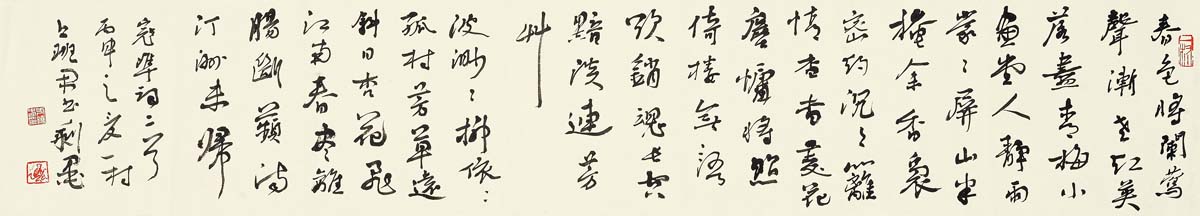 春色將闌鶯
聲漸老紅英
落盡青梅小
畫堂人靜雨
蒙〻屏山半
掩余香裊
密約沉〻離
情杳杳菱花
塵慵將照
倚樓無語
欲銷魂長空
黯淡連芳
艸
波渺〻柳依〻
孤村芳草遠
斜日杏花飛
江南春盡離
腸斷蘋滿
汀洲未歸
寇準詞二首
丙申之夏一村